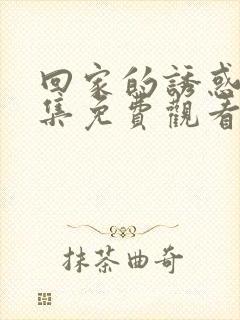 回家的誘惑
集免費觀看
抹茶曲奇